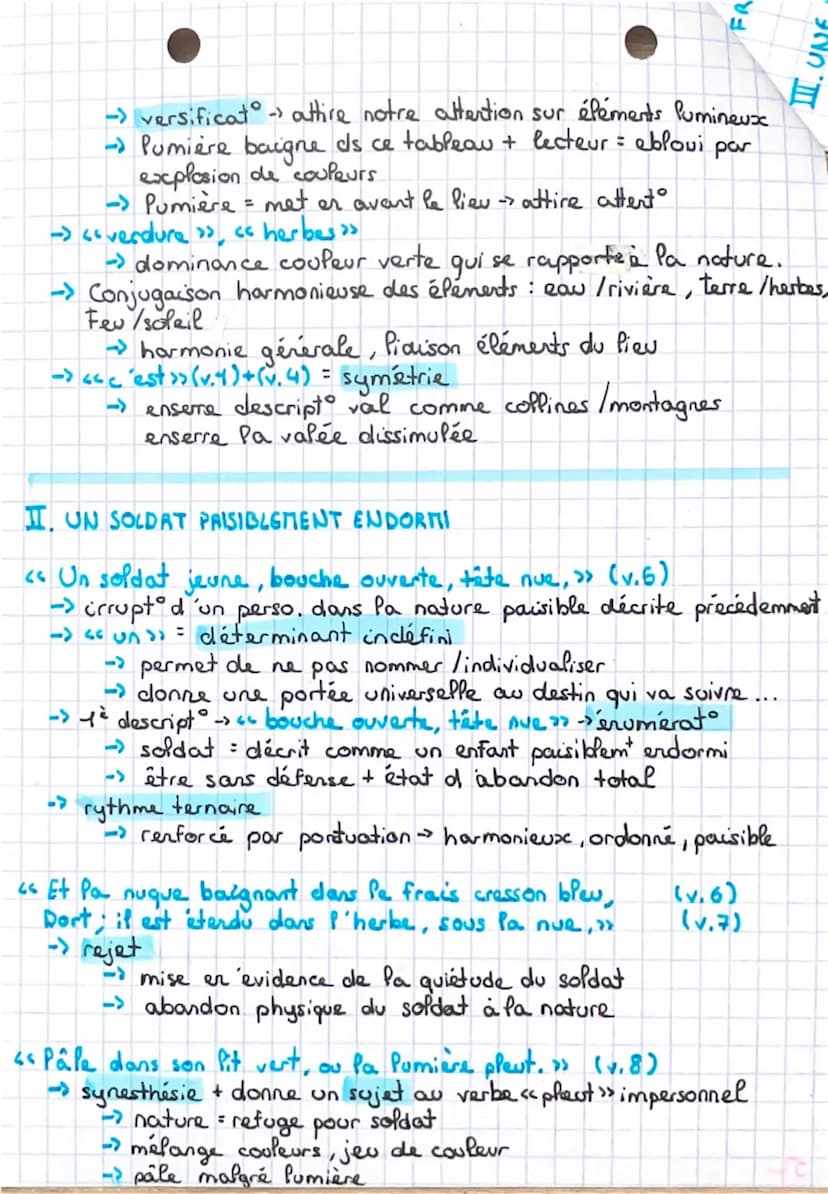 FR
III. UNE
→ versificat° → attire notre attention sur éléments lumineux
→ lumière baigne ds ce tableau + lecteur = ebloui par
explosion de couleurs
→ lumière = met en avant le lieu → attire attent°
→ « verdure », « herbes »
→ dominance couleur verte qui se rapporte à la nature.
→ Conjugaison harmonieuse des éléments : eau /rivière, terre /herbes,
Feu /soleil
→ harmonie générale, liaison éléments du lieu
→ « c'est » (v.1)+(v.4) = symétrie
→ enserre descript° val comme collines /montagnes
enserre la valée dissimulée
II. UN SOLDAT PAISIBLEMENT ENDORMI
« Un soldat jeune, bouche ouverte, tête nue, » (v.5)
→ irrupt° d'un perso. dans la nature paisible décrite précédemment
→ « un » = déterminant indéfini
→ permet de ne pas nommer /individualiser
→ donne une portée universelle au destin qui va suivre ...
→ 1è descript° → « bouche ouverte, tête nue » → énumérat°
→ soldat = décrit comme un enfant paisiblemt endormi
→ être sans défense + état d'abandon total
→ rythme ternaire
→ renforcé par pontuation → harmonieux, ordonné, paisible
« Et la nuque baignant dans le frais cresson bleu, (v.6)
Dort ; il est étendu dans l'herbe, sous la nue, » (v.7)
→ rejet
→ mise en évidence de la quiétude du soldat
→ abandon physique du soldat à la nature
« Pâle dans son lit vert, ou la lumière pleut. » (v.8)
→ synesthésie + donne un sujet au verbe « pleut » impersonnel
→ nature = refuge pour soldat
→ mélange couleurs, jeu de couleur
→ pâle malgré lumière